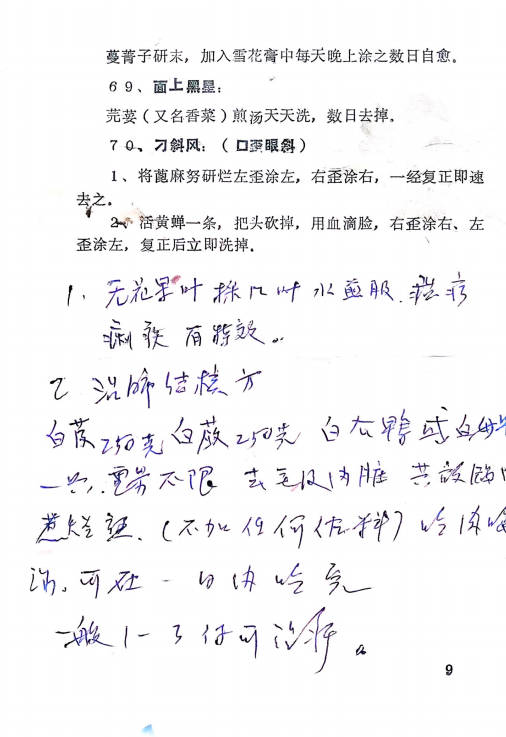 蔓菁子研末，加入雪花膏中每天晚上涂之数日自愈。
69、面上黑星：
芫荽（又名香菜）煎汤天天洗，数日去掉。
70、刁斜风：（口歪眼斜）
1、将蓖麻努研烂左歪涂左，右歪涂右，一经复正即速
去之。
2、活黄蝉一条，把头砍掉，用血滴脸，右歪涂右、左
歪涂左，复正后立即洗掉。
1、无花果叶 采几叶 水煎服.
有特效。
2 治肺结核方
白芨250克 白蔹250克 白公鸭或白母
一只.重量不限 去毛及内脏 共放锅
煮烂熟.（不加任何佐料）吃肉喝
汤.可在一日内吃完
一般1-3付可治好。
9